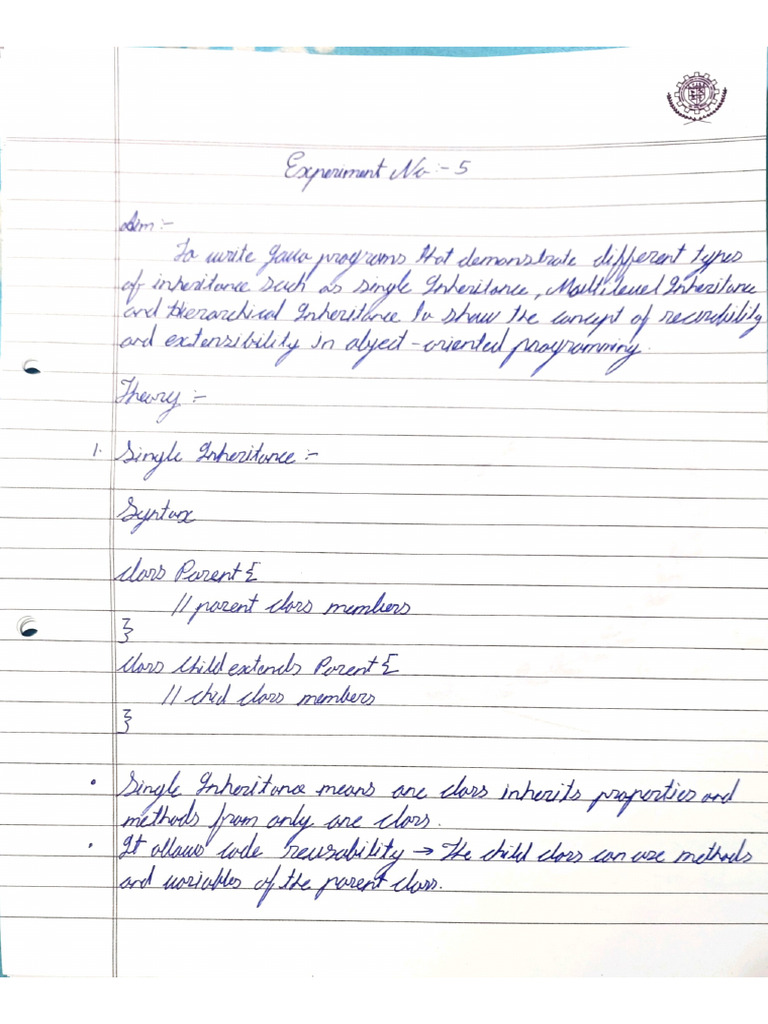 Experiment No :- 5
Aim :-
To write Java programs that demonstrate different types
of inheritance such as single Inheritance, Multilevel Inheritance
and Hierarchical Inheritance to show the concept of reusability
and extensibility in object-oriented programming.
Theory :-
1. Single Inheritance :-
Syntax
class Parent {
// parent class members
}
class Child extends Parent {
// chid class members
}
• Single Inheritance means one class inherits properties and
methods from only one class.
• It allows code reusability → The child class can use methods
and variables of the parent class.